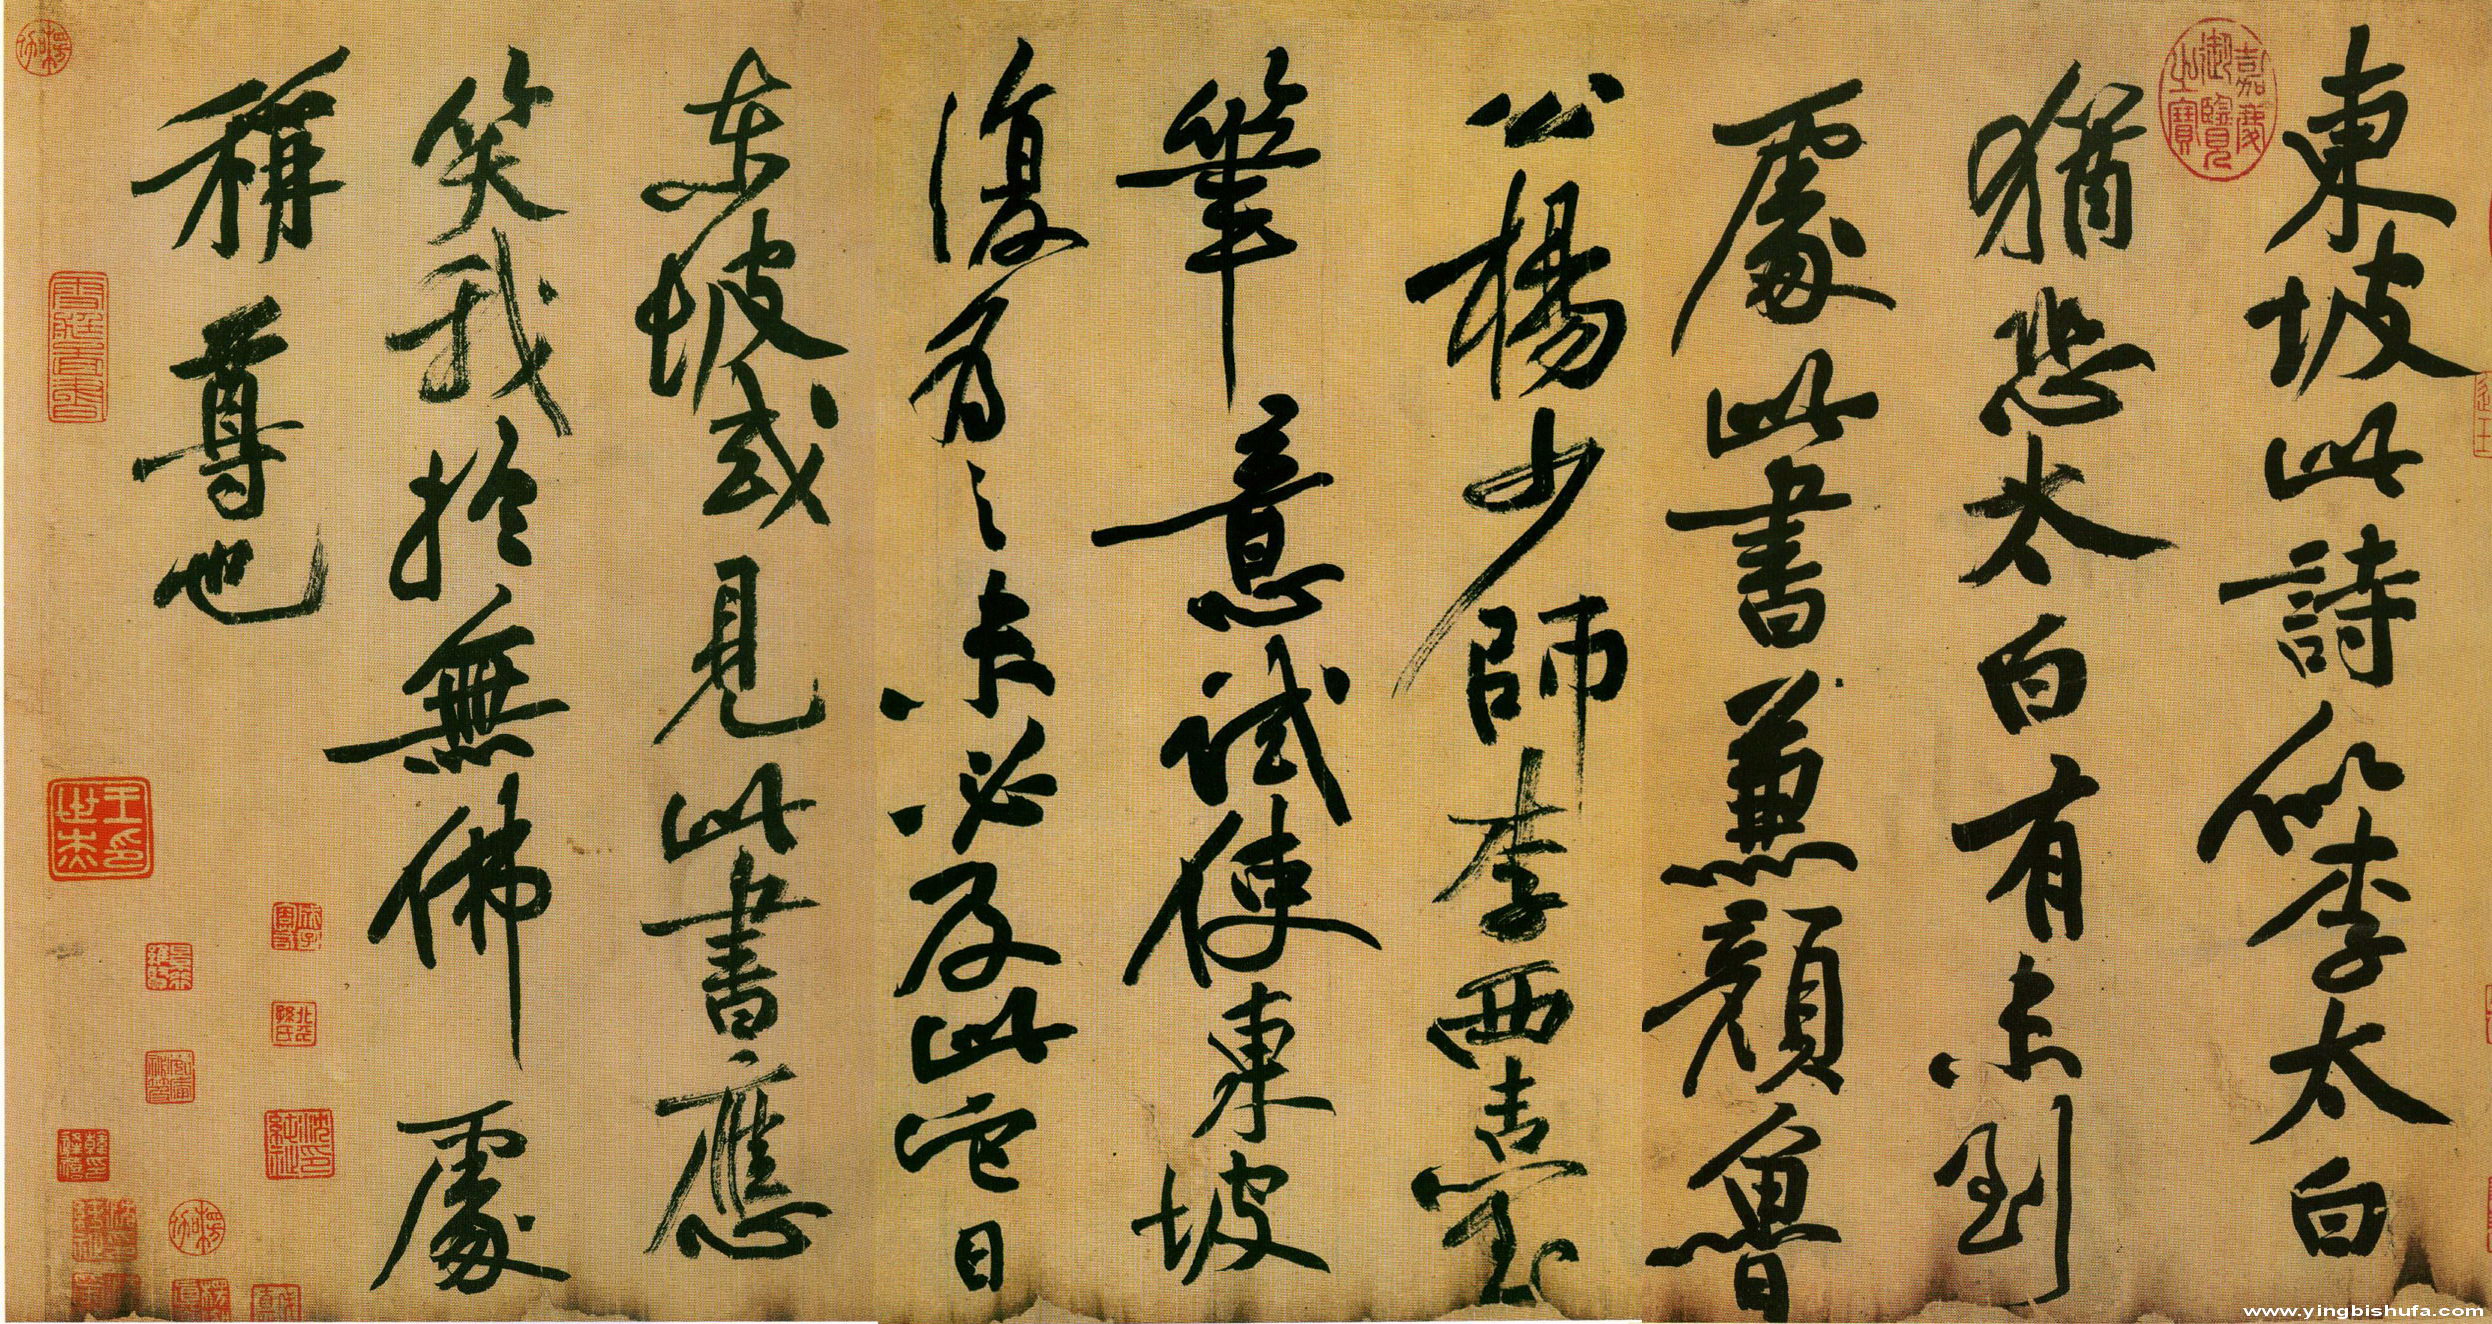 東坡此詩似李太白
猶恐太白有未到
處此書兼顏魯
公楊少師李西臺
筆意試使東坡
復為之未必及此它日
東坡或見此書應
笑我於無佛處
稱尊也
嘉慶御覽之寶
www.yingbishufa.com